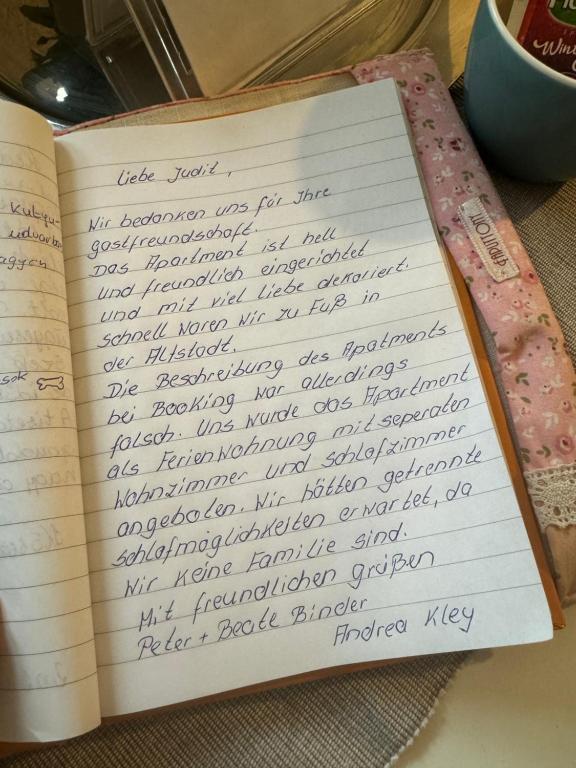 Liebe Judit,
Wir bedanken uns für Ihre
gastfreundschaft.
Das Apartment ist hell
und freundlich eingerichtet
und mit viel liebe dekoriert.
schnell waren wir zu Fuß in
der Altstadt.
Die Beschreibung des Apatments
bei Booking war allerdings
falsch. Uns wurde das Apartment
als Ferienwohnung mit seperaten
Wohnzimmer und schlafzimmer
angeboten. Wir hätten getrennte
schlafmöglichkeiten erwartet, da
Wir keine Familie sind.
Mit freundlichen grüßen
Peter + Beate Binder
Andrea Kley